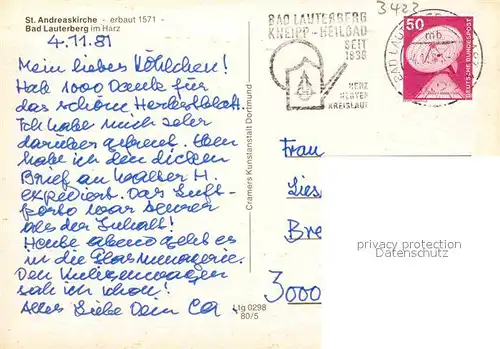 St. Andreaskirche - erbaut 1571 -
Bad Lauterberg im Harz
4.11.81
Mein liebes Köhlchen!
Hab 1000 Dank für
das schöne Herbstblatt.
Ich habe mich sehr
darüber gefreut. Eben
habe ich den dicken
Brief an Walter H.
expediert. Das Luft-
porto war teurer
als der Inhalt!
Heute abend geht es
in die Glasmenagerie.
Den
sah ich schon!
Alles Liebe Dein
Cramers Kunstanstalt Dortmund
Ltg 0298
80/5
3422
BAD LAUTERBERG
KNEIPP-HEILBAD
SEIT
1839
HERZ
NERVEN
KREISLAUF
BAD LAU
mb
50
DEUTSCHE BUNDESPOST
Frau
Lies
Bre
3000
privacy protection
Datenschutz